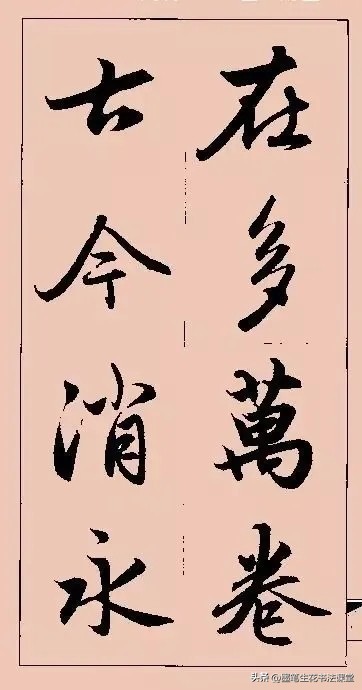 在多萬卷
古今消永
头条 @墨笔生花书法课堂